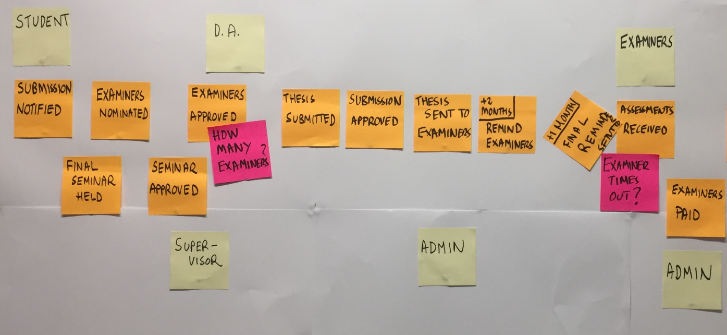 STUDENT
D.A.
EXAMINERS
SUBMISSION
NOTIFIED
EXAMINERS
NOMINATED
EXAMINERS
APPROVED
THESIS
SUBMITTED
SUBMISSION
APPROVED
THESIS
SENT TO
EXAMINERS
+2
MONTHS
REMIND
EXAMINERS
+1 MONTH
FINAL
REMINDER
ASSESSMENTS
RECEIVED
HOW
MANY ?
EXAMINERS
FINAL
SEMINAR
HELD
SEMINAR
APPROVED
EXAMINER
TIMES
OUT?
EXAMINERS
PAID
SUPER-
VISOR
ADMIN
ADMIN